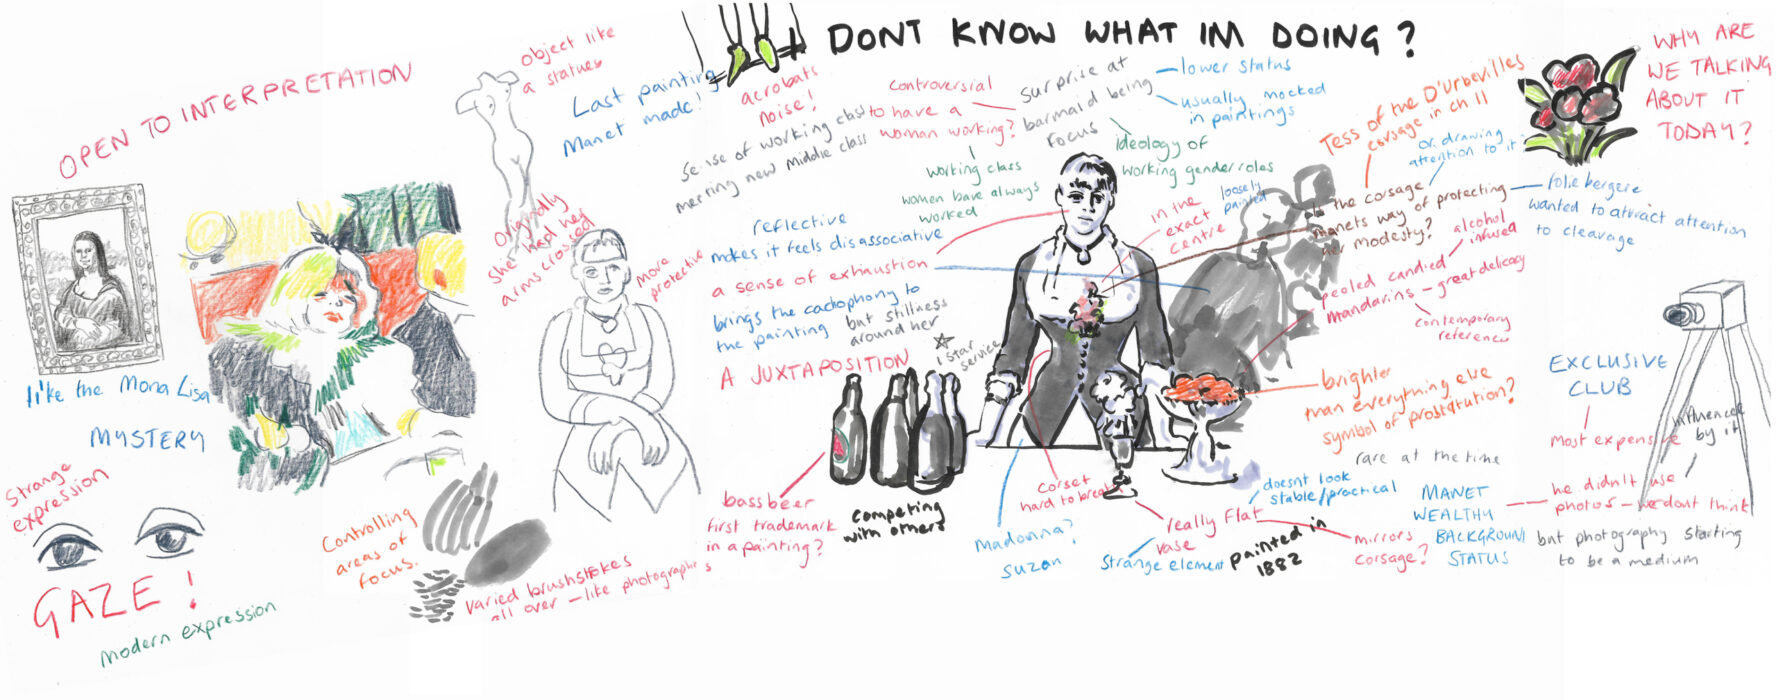 I DONT KNOW WHAT IM DOING ?
OPEN TO INTERPRETATION
like the Mona Lisa
MYSTERY
strange
expression
GAZE !
modern expression
Controlling
areas of
focus.
varied brushstrokes
all over – like photographs
object like
a statue
Originally
she had her
arms crossed
more
protective
Last painting
Manet made!
acrobats
noise!
sense of working class
merting new middle class
controversial
to have a
woman working?
working class
women have always
worked
surprise at
barmaid being
focus
lower status
usually mocked
in paintings
ideology of
working gender roles
reflective
makes it feels disassociative
a sense of exhaustion
brings the cacophony to
the painting
but stillness
around her
A JUXTAPOSITION
1 star
service
in the
exact
centre
loosely
painted
Tess of the D'Urbevilles
corsage in ch 11
or drawing
attention to it
is the corsage
manets way of protecting
her modesty?
folie bergere
wanted to attract attention
to cleavage
alcohol
infused
peeled candied
mandarins – great delicacy
contemporary
reference
brighter
than everything else
symbol of prostitution?
bass beer
first trademark
in a painting?
competing
with others
Madonna?
Suzon
corset
hard to breath
really flat
vase
strange element
painted in
1882
mirrors
corsage?
doesnt look
stable/practical
rare at the time
MANET
WEALTHY
BACKGROUND
STATUS
he didn't use
photos – we dont think
but photography starting
to be a medium
influenced
by it
EXCLUSIVE
CLUB
most expensive
WHY ARE
WE TALKING
ABOUT IT
TODAY?